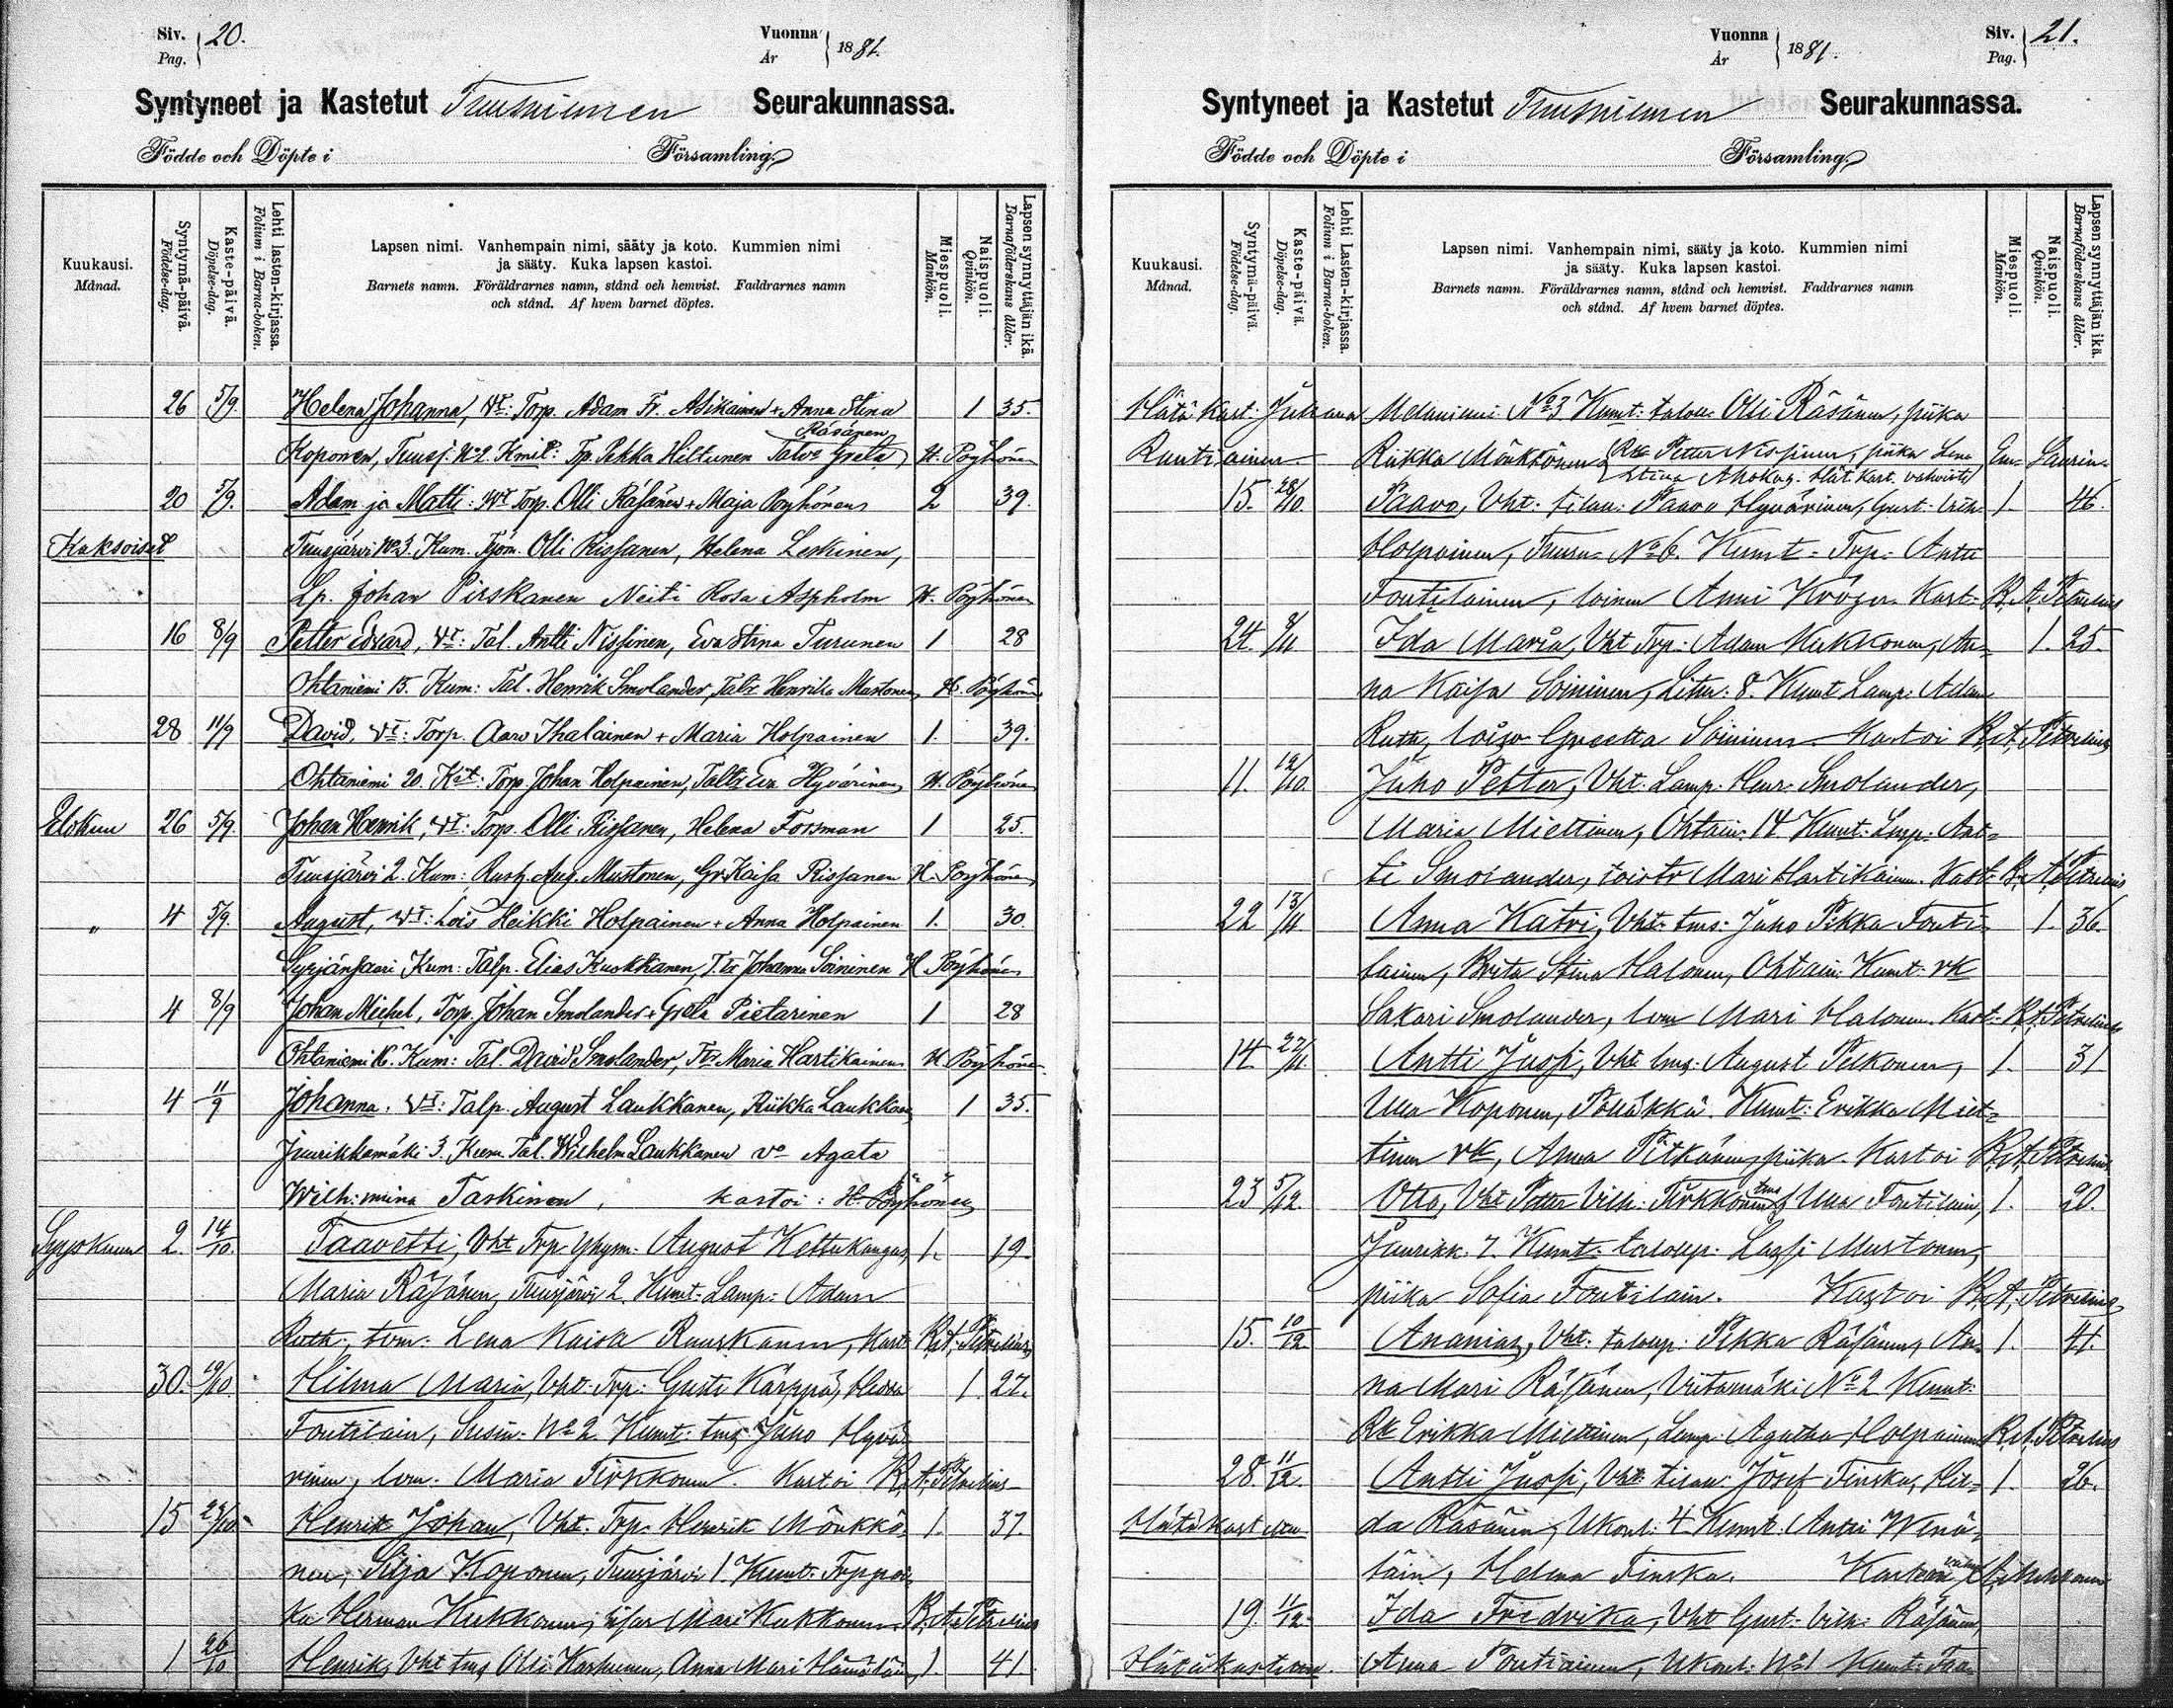 Siv. 20.
Pag.
Vuonna 1881.
År
Syntyneet ja Kastetut Tuusniemen Seurakunnassa.
Födde och Döpte i Församling.
Kuukausi.
Månad.
Syntymä-päivä.
Födelse-dag.
Kaste-päivä.
Döpelse-dag.
Lehti lasten-kirjassa.
Folium i Barna-boken.
Lapsen nimi. Vanhempain nimi, sääty ja koto. Kummien nimi
ja sääty. Kuka lapsen kastoi.
Barnets namn. Föräldrarnes namn, stånd och hemvist. Faddrarnes namn
och stånd. Af hvem barnet döptes.
Miespuoli.
Mankön.
Naispuoli.
Qvinkön.
Lapsen synnyttäjän ikä.
Barnaföderskans ålder.
26 5/9. Helena Johanna, Vt: Torp. Adam Fr. Asikainen + Anna Stina 1 35.
Räsänen
Koponen, Tuusj. No 2. Kmit: Tp. Pekka Hiltunen Talve Greta H. Pöyhönen
20 5/9. Adam ja Matti: Vt Torp. Olli Räsänen + Maja Pöyhönen 2 39.
Kaksoiset Tuusjärvi No 3. Kum. Työm. Olli Rissanen, Helena Leskinen,
Lp. Johan Pirskanen Neiti Rosa Aspholm H. Pöyhönen
16 8/9 Petter Edvard, Vt: Tal. Antti Nissinen, Eva Stina Turunen 1 28
Ohtaniemi 15. Kum: Tal. Henrik Smolander, Talr Henrika Mustonen, H. Pöyhönen
28 11/9 David, Vt: Torp. Aaro Ihalainen + Maria Holpainen 1. 39.
Ohtaniemi 20. Kit: Torp. Johan Holpainen, Taltr Eva Hyvärinen H. Pöyhönen
Elokuu 26 5/9. Johan Henrik, Vt: Torp. Olli Rissanen, Helena Forsman 1 25.
Tuusjärvi 2. Kum: Rusth. Aug. Mustonen, Gr. Kaisa Rissanen H. Pöyhönen
" 4 5/9. August, Vt: Lois Heikki Holpainen + Anna Holpainen 1. 30.
Syrjänsaari Kum: Talp. Elias Kuokkanen, T. tr Johanna Soininen H Pöyhönen
4 8/9 Johan Michel, Torp. Johan Smolander + Greta Pietarinen 1 28
Ohtaniemi 16. Kum: Tal. David Smolander, Ttr Maria Hartikainen H Pöyhönen
4 11/9 Johanna. Vt: Talp. August Laukkanen, Riikka Laukkan 1 35.
Juurikkamäki 3. Kum. Tal. Wilhelm Laukkanen vo Agata
Wilhelmina Taskinen, kastoi: H. Pöyhönen
Syyskuu 2. 14/10. Taavetti, Vht Trp Yhym. August Kettukangas, 1. 19.
Maria Räsänen, Tuusjärvi 2. Kumt: Lamp: Adam
Ruth, tvm: Lena Kaisa Ruuskanen, Kast: R. A. Petrelius
30. 19/10. Hilma Maria, Vht: Trp: Gusti Kärppä, Hedda 1. 27.
Toutilain, Susin: No 2. Kumt: tms Juho Hyvä-
rinen, lvm: Maria Tirkkonen. Kastoi R. A. Petrelius
15 23/10. Henrik Johan, Vht: Trp. Henrik Mönkkö- 1. 37.
nen, Silja Koponen, Tuusjärvi 1. Kumt: Trppoi-
ka Herman Kukkonen, sisar Mari Kukkonen R. A. Petrelius
1 26/10 Henrik, Vht tms Olli Karhunen, Anna Mari Hämäläin 1 41
Vuonna 1881.
År
Siv. 21.
Pag.
Syntyneet ja Kastetut Tuusniemen Seurakunnassa.
Födde och Döpte i Församling.
Kuukausi.
Månad.
Syntymä-päivä.
Födelse-dag.
Kaste-päivä.
Döpelse-dag.
Lehti Lasten-kirjassa.
Folium i Barna-boken.
Lapsen nimi. Vanhempain nimi, sääty ja koto. Kummien nimi
ja sääty. Kuka lapsen kastoi.
Barnets namn. Föräldrarnes namn, stånd och hemvist. Faddrarnes namn
och stånd. Af hvem barnet döptes.
Miespuoli.
Mankön.
Naispuoli.
Qvinkön.
Lapsen synnyttäjän ikä.
Barnaföderskans ålder.
Hätä kast: Juliana Melaniemi No 3 Kumt: talou: Olli Räsänen, piika
Rautiainen. Riikka Mönkkönen Rk Petter Nissinen, piika Lena Em- Laurin.
Stina Ahokas. Hät. kast. vahvisti
15. 28/10. Paavo, Vht: tilan: Paavo Hyvärinen, Gust: Vilh: 1. 46.
Holpainen, Tuusn: No 6. Kumt: Trp: Antti
Toutilainen, loinen Anni Kröger. Kast: R. A. Petrelius
24. 8/11. Ida Maria, Vht Trp: Adam Kukkonen, An- 1. 25.
na Kaisa Soininen, Litm: 8. Kumt Lamp: Adam
Ruth, loisv Greetta Soininen. Kastoi R. A. Petrelius
11. 12/10. Juho Petter, Vht: Lamp. Henr: Smolander,
Maria Miettinen, Ohtain: 14. Kumt: Lmp: Ant-
ti Smolander, loistr Mari Hartikainen. Kast: R. A. Petrelius
22 13/11. Anna Katri, Vht: tms: Juho Pekka Touti- 1. 36.
lainen, Brita Stina Halonen, Ohtain: Kumt: rk
Sakari Smolander, lvm Mari Halonen. Kast: R. A. Petrelius
14. 27/11. Antti Jussi, Vht: tms: August Pelkonen, 1. 31
Ulla Koponen, Pölläkkä. Kumt: Erikka Miet-
tinen rk, Anna Pitkänen, piika. Kastoi R. A. Petrelius
23 5/12. Otto, Vht Petter Vilh: Tirkkonen tms Ulla Toutilain, 1. 20.
Juurikk. 7. Kumt: taloup: Lassi Mustonen,
piika Sofia Toutilain. Kastoi R. A. Petrelius
15. 10/12. Ananias, Vht: taloup: Pekka Räsänen, An- 1. 41.
na Mari Räsänen, Viitamäki No 2 Kumt:
Rk Erikka Miettinen, Lamp: Agatha Holpainen R. A. Petrelius
28. 11/12. Antti Jussi, Vht: tilan: Josef Finska, Hil- 1. 26.
Hätäkast da Räsänen, Ukonl: 4. Kumt: Antti Wenä-
läin, Helena Finska.
19. 11/12. Ida Fredrika, Vht Gust: Vilh: Räsänen,
Hätäkast Anna Poutiainen, Ukonl: No 1 Kumt: